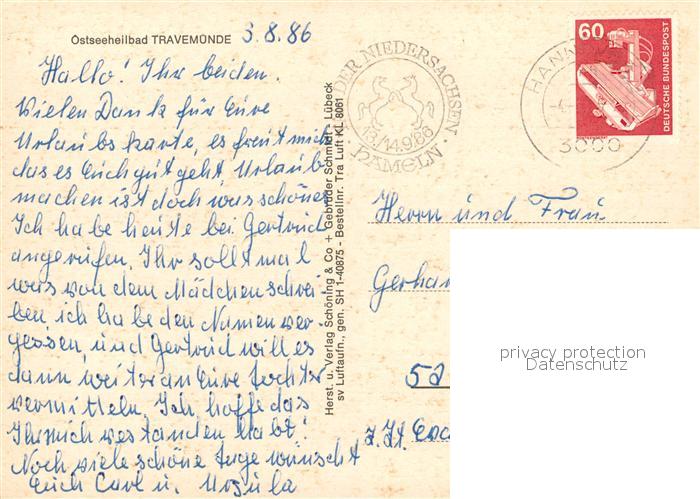 Ostseeheilbad TRAVEMÜNDE 3.8.86
Hallo! Ihr beiden.
Vielen Dank für Eure
Urlaubskarte, es freut mich
das es Euch gut geht. Urlaub
machen ist doch was schönes
Ich habe heute bei Gertrud
angerufen. Ihr sollt mal
was von dem Mädchen schrei-
ben, ich habe den Namen ver-
gessen, und Gertrud will es
dann weiter an Eure Tochter
vermitteln. Ich hoffe das
Ihr mich verstanden habt!
Noch viele schöne Tage wünscht
Euch Curl u. Ursula
Herst. u. Verlag Schöning & Co + Gebrüder Schmidt - Lübeck
sv Luftaufn., gen. SH 1-40875 - Bestellnr. Tra Luft KL 8061
DER NIEDERSACHSEN
14.9.86
HAMELN
HANN
3000
60
DEUTSCHE BUNDESPOST
Herrn und Frau
Gerhar
58
z.Zt.
privacy protection
Datenschutz